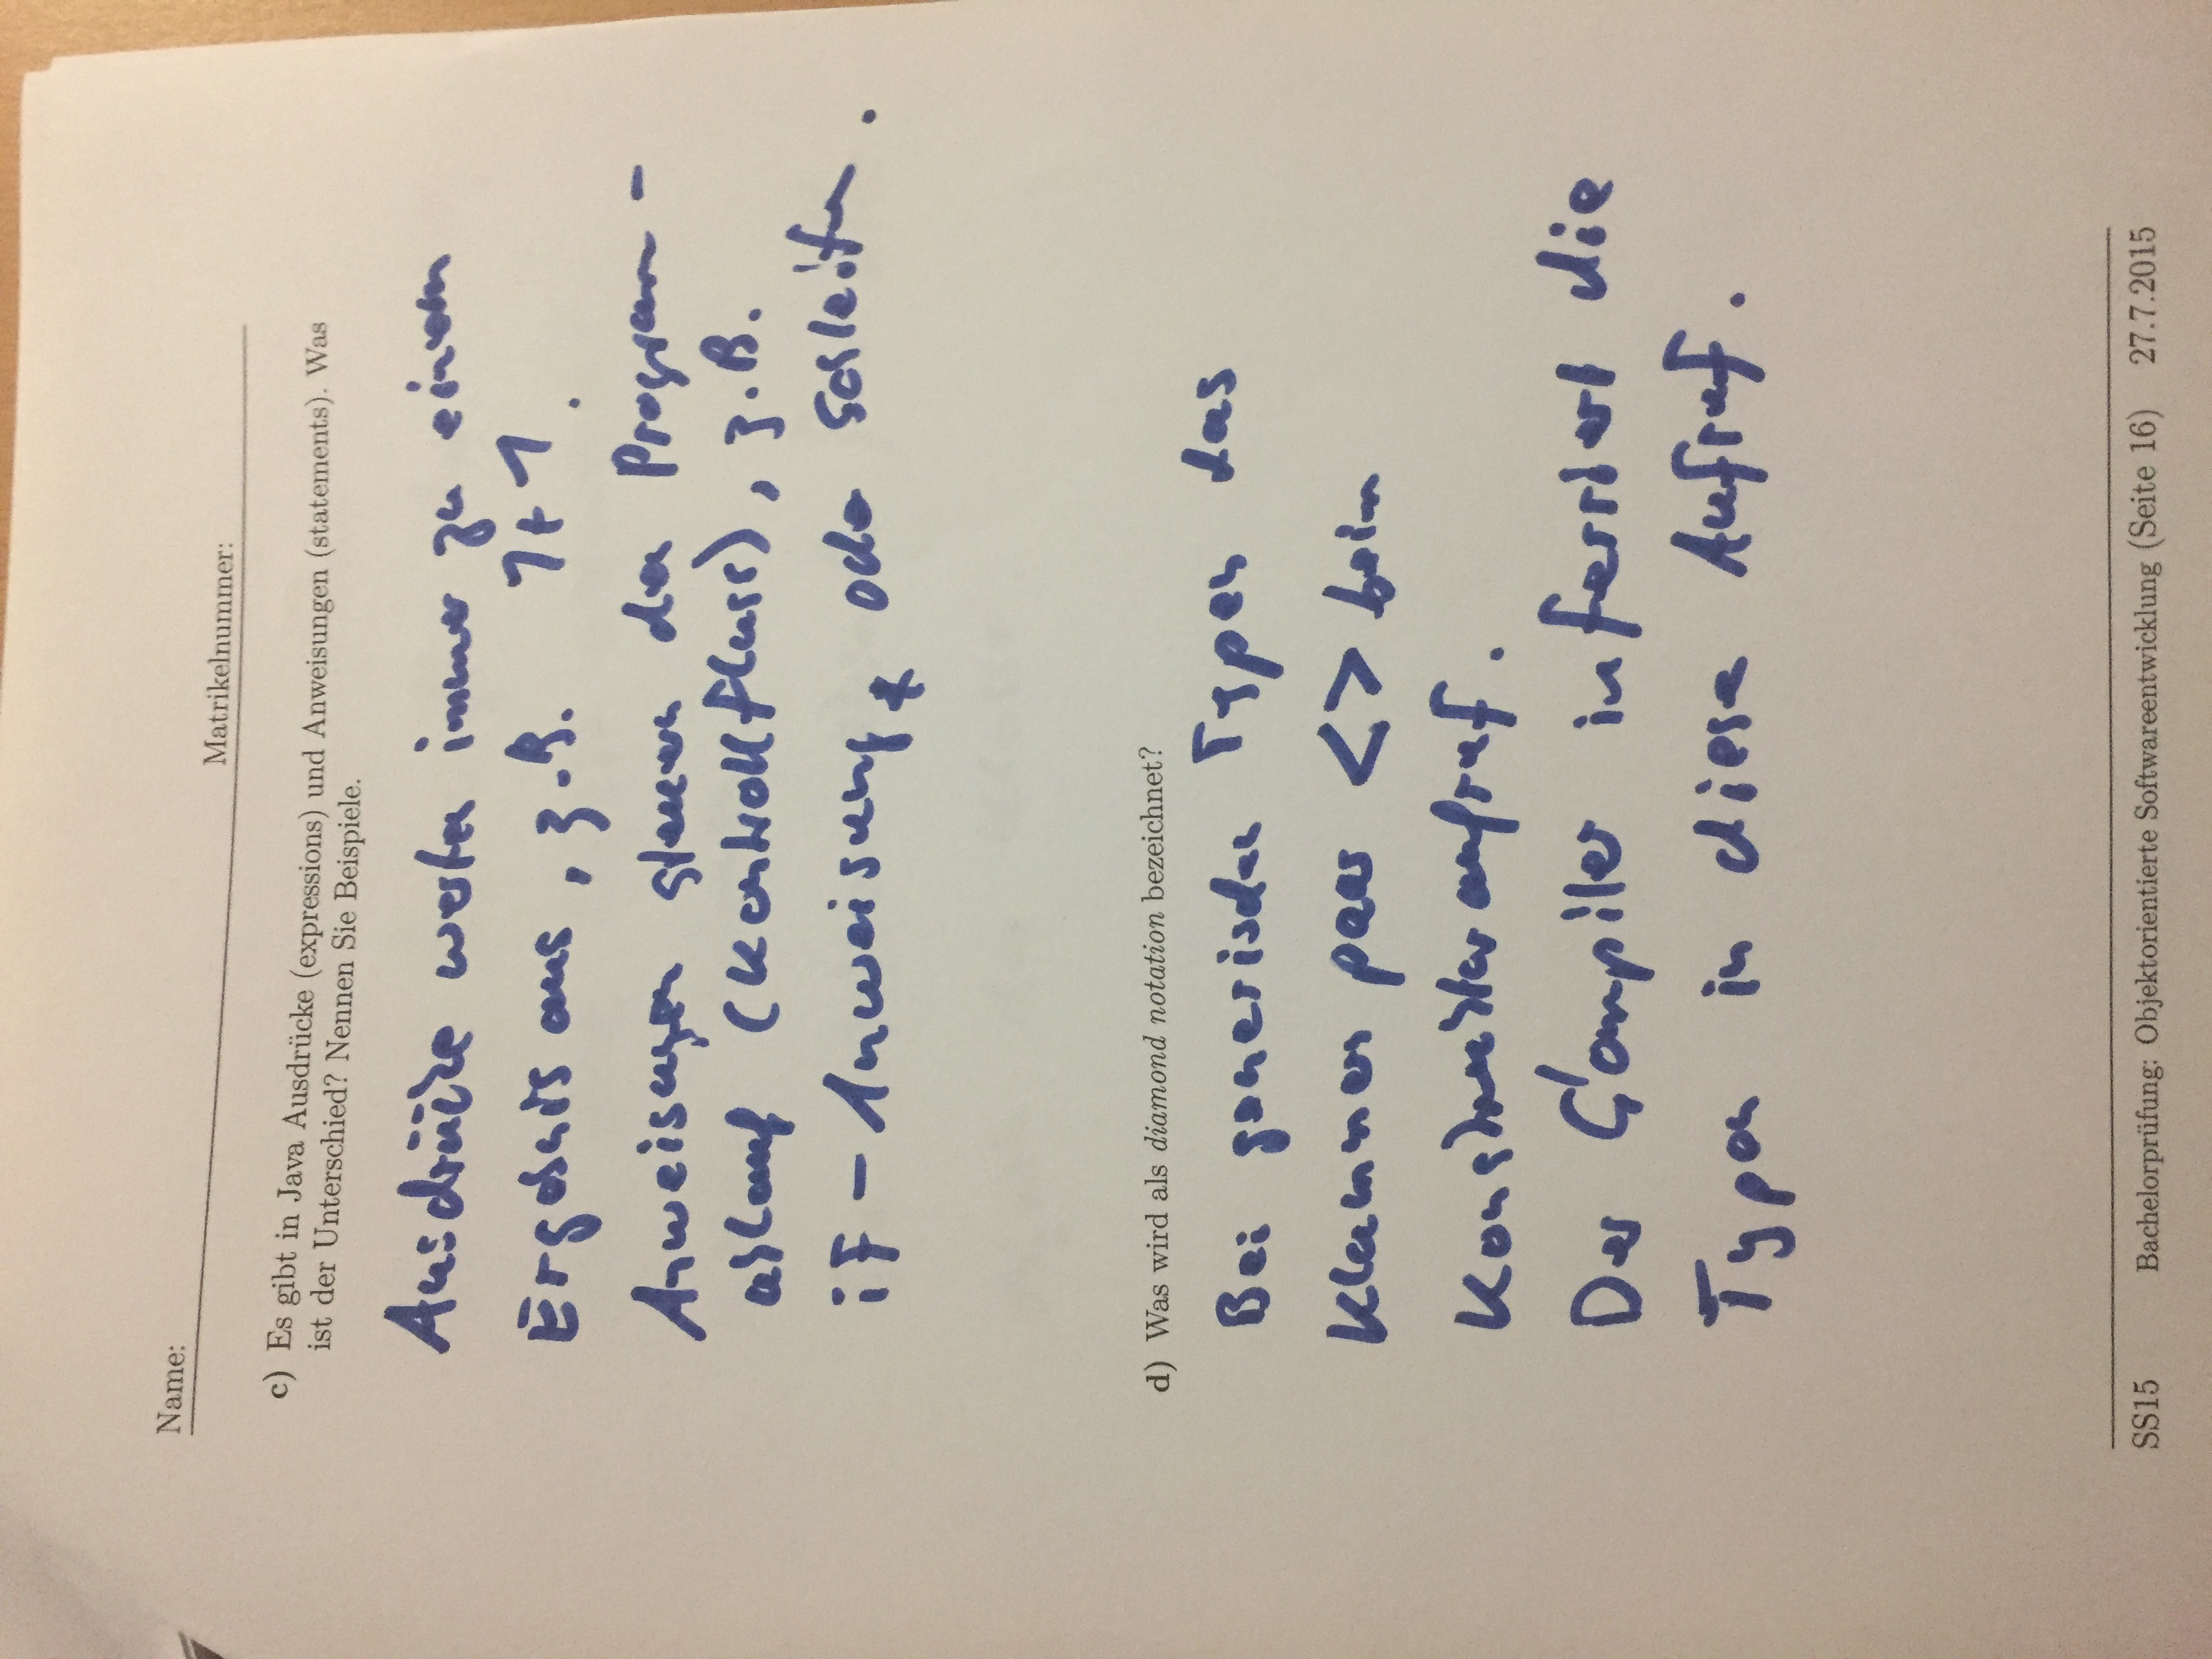 Name:
Matrikelnummer:
c) Es gibt in Java Ausdrücke (expressions) und Anweisungen (statements). Was
ist der Unterschied? Nennen Sie Beispiele.
Ausdrücke werten immer zu einem
Ergebnis aus, z.B. 7+1.
Anweisungen steuern den Program-
ablauf (Kontrollfluss), z.B.
if-Anweisung oder Schleifen.
d) Was wird als diamond notation bezeichnet?
Bei generischen Typen das
Klammerpaar <> beim
Konstruktoraufruf.
Der Compiler inferriert die
Typen in diesem Aufruf.
SS15 Bachelorprüfung: Objektorientierte Softwareentwicklung (Seite 16) 27.7.2015